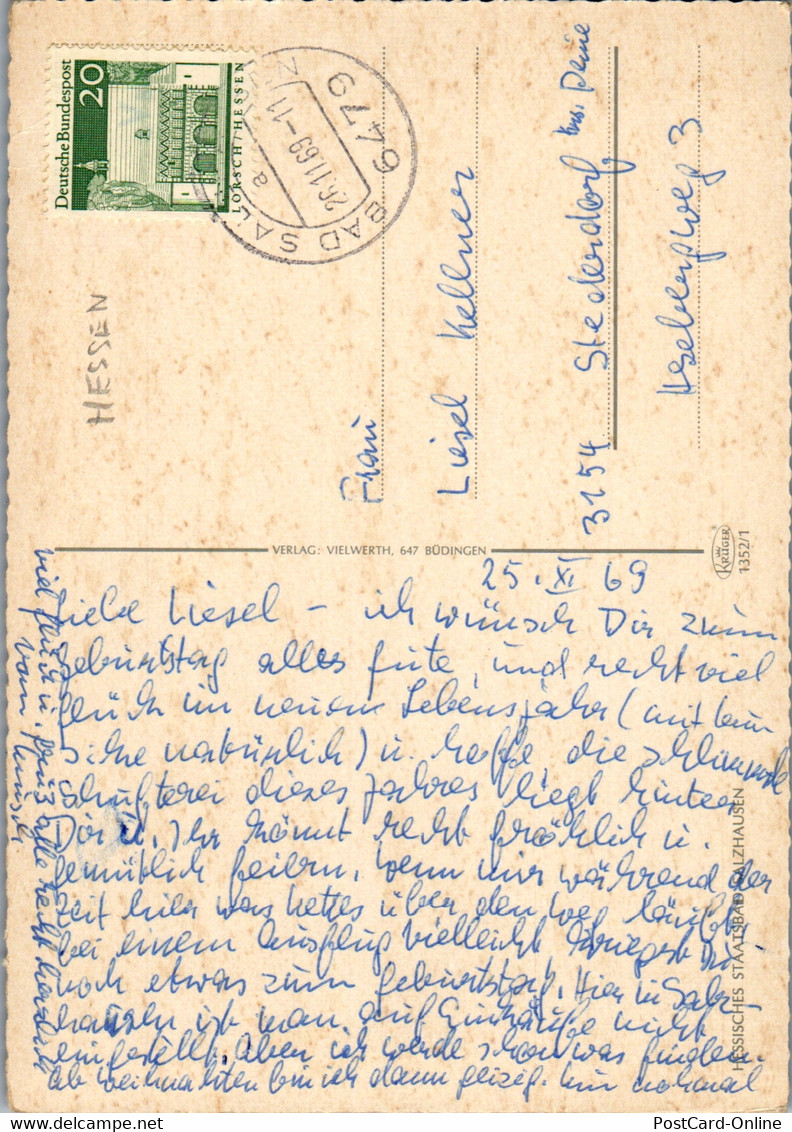 Deutsche Bundespost
20
LORSCH / HESSEN
6479 BAD SAL
26.11.69-11
a
HESSEN
Frau
Liesel Kellner
3154 Stederdorf Krs. Peine
Heseberg Weg 3
VERLAG: VIELWERTH, 647 BÜDINGEN
KRÜGER
1352/1
HESSISCHES STAATSBAD SALZHAUSEN
25. XI 69
Liebe Liesel – ich wünsch Dir zum
Geburtstag alles Gute, und recht viel
Glück im neuen Lebensjahr (mit
natürlich) u. hoffe die schlimmste
Schufterei dieses Jahres liegt hinter
Dir u. Ihr könnt recht fröhlich u.
gemütlich feiern. Wenn mir während der
Zeit hier was nettes über den Weg läuft,
bei einem Ausflug vielleicht kriegst Du
noch etwas zum Geburtstag. Hier in Salz-
hausen ist man auf Einkäufe nicht
eingestellt, aber ich werde schon was finden.
Ab Weihnachten bin ich dann geizig. nun nochmal
viel Glück u. grüß alle recht herzlich
vom